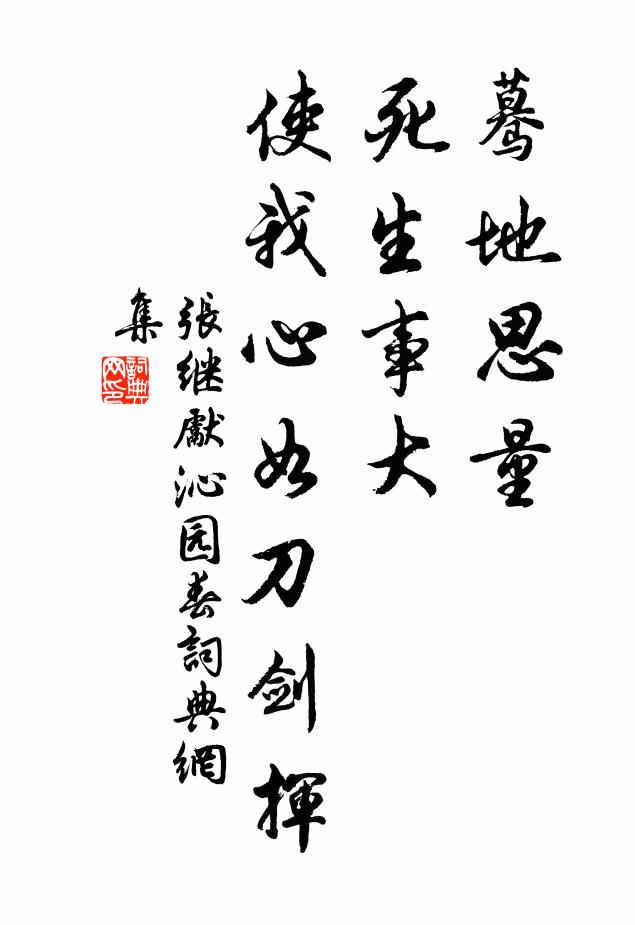 驀地思量
死生事大
使我心如刀剑揮
張继獻沁园春詞典網
集
詞典
网印